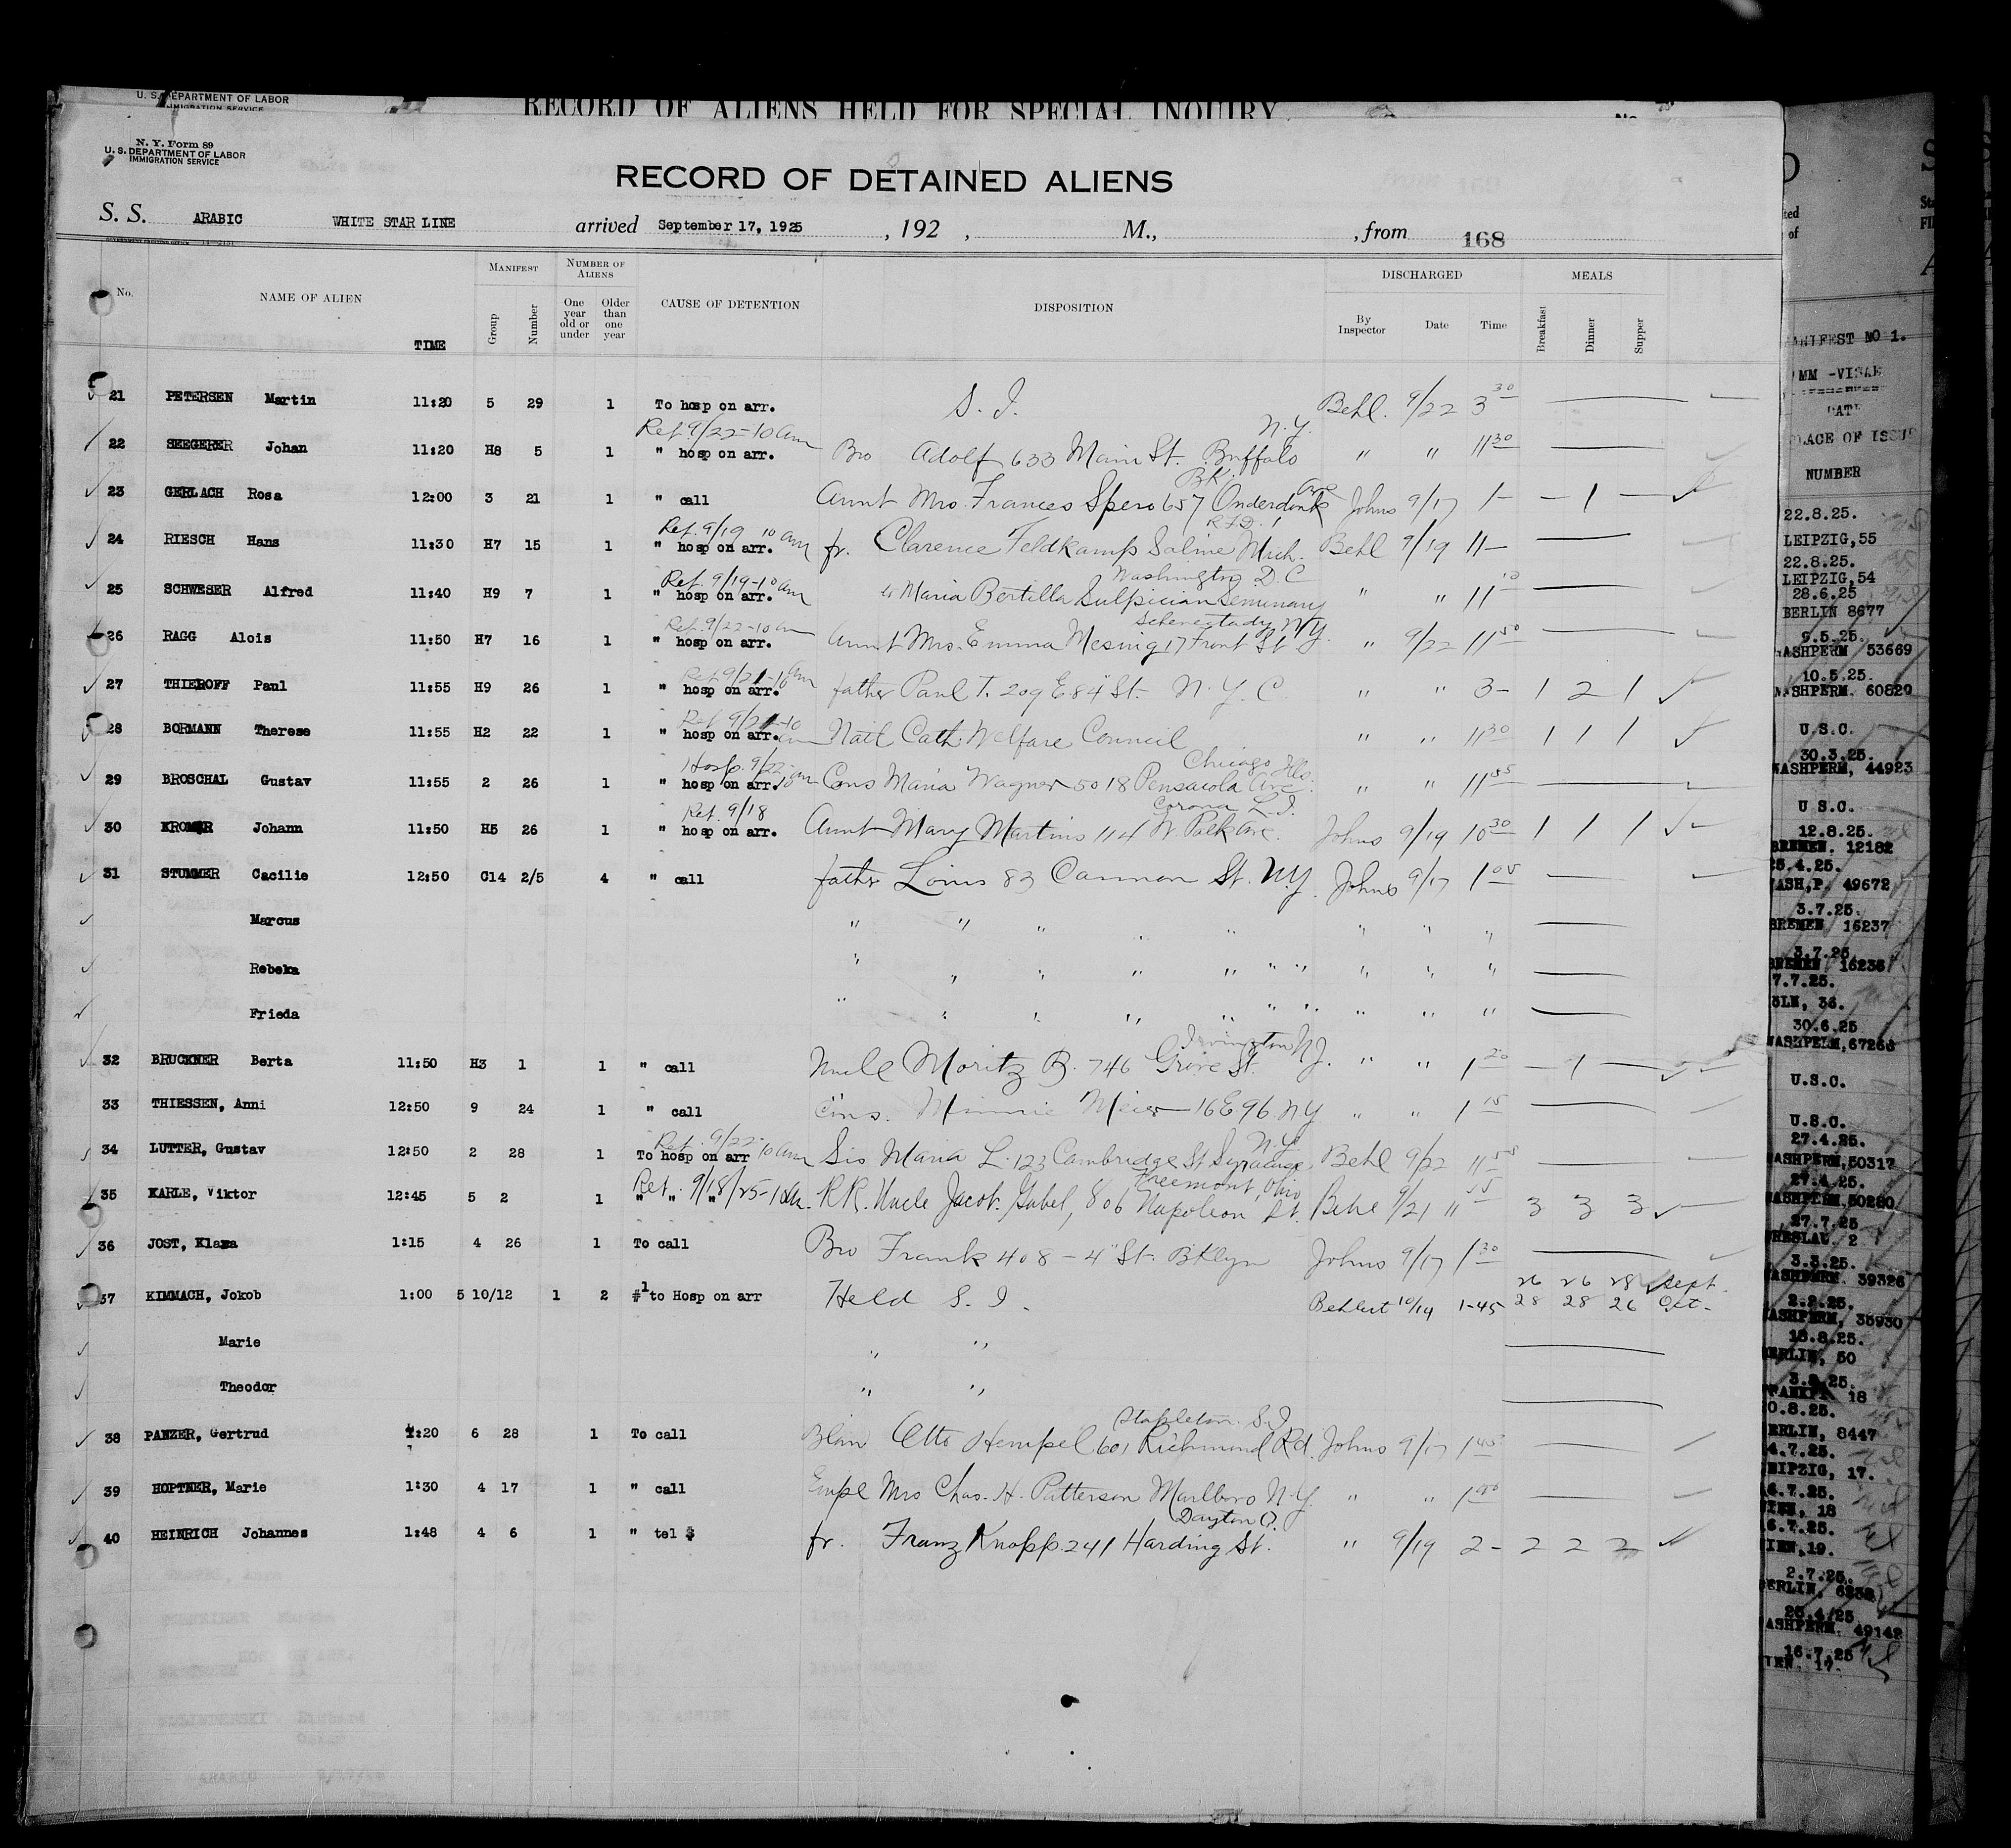 U. S. DEPARTMENT OF LABOR
IMMIGRATION SERVICE
RECORD OF ALIENS HELD FOR SPECIAL INQUIRY
No.
N. Y. Form 89
U. S. DEPARTMENT OF LABOR
IMMIGRATION SERVICE
RECORD OF DETAINED ALIENS
S. S. ARABIC WHITE STAR LINE arrived September 17, 1925, 192 , M., , from 168
No. NAME OF ALIEN TIME MANIFEST Group Number NUMBER OF ALIENS One year old or under Older than one year CAUSE OF DETENTION DISPOSITION DISCHARGED By Inspector Date Time MEALS Breakfast Dinner Supper
21 PETERSEN Martin 11:20 5 29 1 To hosp on arr. S. I. Behl. 9/22 3 30
Ret 9/22-10 am N.Y.
22 SEEGERER Johan 11:20 H8 5 1 " hosp on arr. Bro Adolf 633 Main St. Buffalo " " 11 30
Bk.
23 GERLACH Rosa 12:00 3 21 1 " call Aunt Mrs. Frances Spero 657 Onderdonk Ave Johns 9/17 1- - 1 -
Ret. 9/19 10 am R.F.D. 1
24 RIESCH Hans 11:30 H7 15 1 " hosp on arr. fr. Clarence Feldkamp Saline Mich. Behl 9/19 11-
Ret. 9/19-10 am Washington D.C
25 SCHWESER Alfred 11:40 H9 7 1 " hosp on arr. " Maria Bertilla Sulpician Seminary " " 11 10
Ret. 9/22-10 am Schenectady N.Y.
26 RAGG Alois 11:50 H7 16 1 " hosp on arr. Aunt Mrs. Emma Mesing 17 Front St " 9/22 11 50
Ret 9/21-10 am
27 THIEROFF Paul 11:55 H9 26 1 " hosp on arr. father Paul T. 209 E 84" St- N.Y.C. " " 3- 1 2 1
Ret 9/21-10 am
28 BORMANN Therese 11:55 H2 22 1 " hosp on arr. Natl Cath. Welfare Council " " 11 30 1 1 1
Hosp. 9/22-10 am Chicago Ills.
29 BROSCHAL Gustav 11:55 2 26 1 " hosp on arr. Cons Maria Wagner 5018 Pensacola Ave " " 11 55
Ret. 9/18 Corona L.I.
30 KROMER Johann 11:50 H5 26 1 " hosp on arr. Aunt Mary Martins 114 W. Park Ave. Johns 9/19 10 30 1 1 1
31 STUMMER Cacilie 12:50 G14 2/5 4 " call father Louis 83 Cannon St. N.Y. Johns 9/17 1 05
Marcus " " " " " " " "
Rebeka " " " " " " " " " "
Frieda " " " " " " " " " "
Irvington N.J.
32 BRUCKNER Berta 11:50 H3 1 1 " call Uncle Moritz B. 746 Grove St. " " 1 20 - 1 -
33 THIESSEN, Anni 12:50 9 24 1 " call Cins. Minnie Meier - 16 E 96. N.Y " " 1 15
Ret. 9/22- 10 am N.Y.
34 LUTTER, Gustav 12:50 2 28 1 To hosp on arr Sis Maria L. 123 Cambridge St Syracuse, Behl 9/22 11 55
Ret. 9/18/25-10 Freemont, Ohio
35 KARLE, Viktor 12:45 5 2 1 " " " R.R. Uncle Jacob. Gabel, 806 Napoleon St. Behl 9/21 11 15 3 3 3
36 JOST, Klara 1:15 4 26 1 To call Bro Frank 408 - 4" St. Bklyn Johns 9/17 1 30
26 26 28 Sept.
37 KIMMACH, Jokob 1:00 5 10/12 1 2 #1 to Hosp on arr Held S. I. Behlert 10/14 1-45 28 28 26 Oct-
Marie " "
Theodor " "
Stapleton. S.I
38 PANZER, Gertrud 1:20 6 28 1 To call Otto Hempel 601 Richmond Rd. Johns 9/17 1 45
39 HOPTNER, Marie 1:30 4 17 1 " call Empl Mrs Chas. H. Patterson Marlboro N.Y. " " 1 50
Dayton O.
40 HEINRICH Johannes 1:48 4 6 1 " tel $ fr. Franz Knopp. 241 Harding St. " 9/19 2- 2 2 2
MANIFEST NO 1.
IMM -VISAE
PLACE OF ISSUE
NUMBER
22.8.25.
LEIPZIG,55
22.8.25.
LEIPZIG,54
28.6.25
BERLIN 8677
9.5.25.
WASHPERM 53669
10.5.25.
WASHPERM. 60829
U.S.C.
30.3.25.
WASHPERM, 44923
U S.C.
12.8.25.
BREMEN. 12182
25.4.25.
WASH,P. 49672
3.7.25.
BREMEN 16237
3.7.25.
BREMEN 16236
7.7.25.
KÖLN, 36.
30.6.25
U.S.C.
U.S.C.
27.4.25.
WASHPERM,50317
27.4.25.
27.7.25
BRESLAU. 2
3.3.25.
WASHPERM. 39326
2.2.25.
WASHPERM, 35930
18.8.25.
BERLIN, 50
BERLIN, 8447
4.7.25.
LEIPZIG, 17.
6.7.25.
WIEN, 18
6.7.25.
WIEN,19.
2.7.25.
25.4/25
WASHPERM. 49142
16.7.25
WIEN. 17.